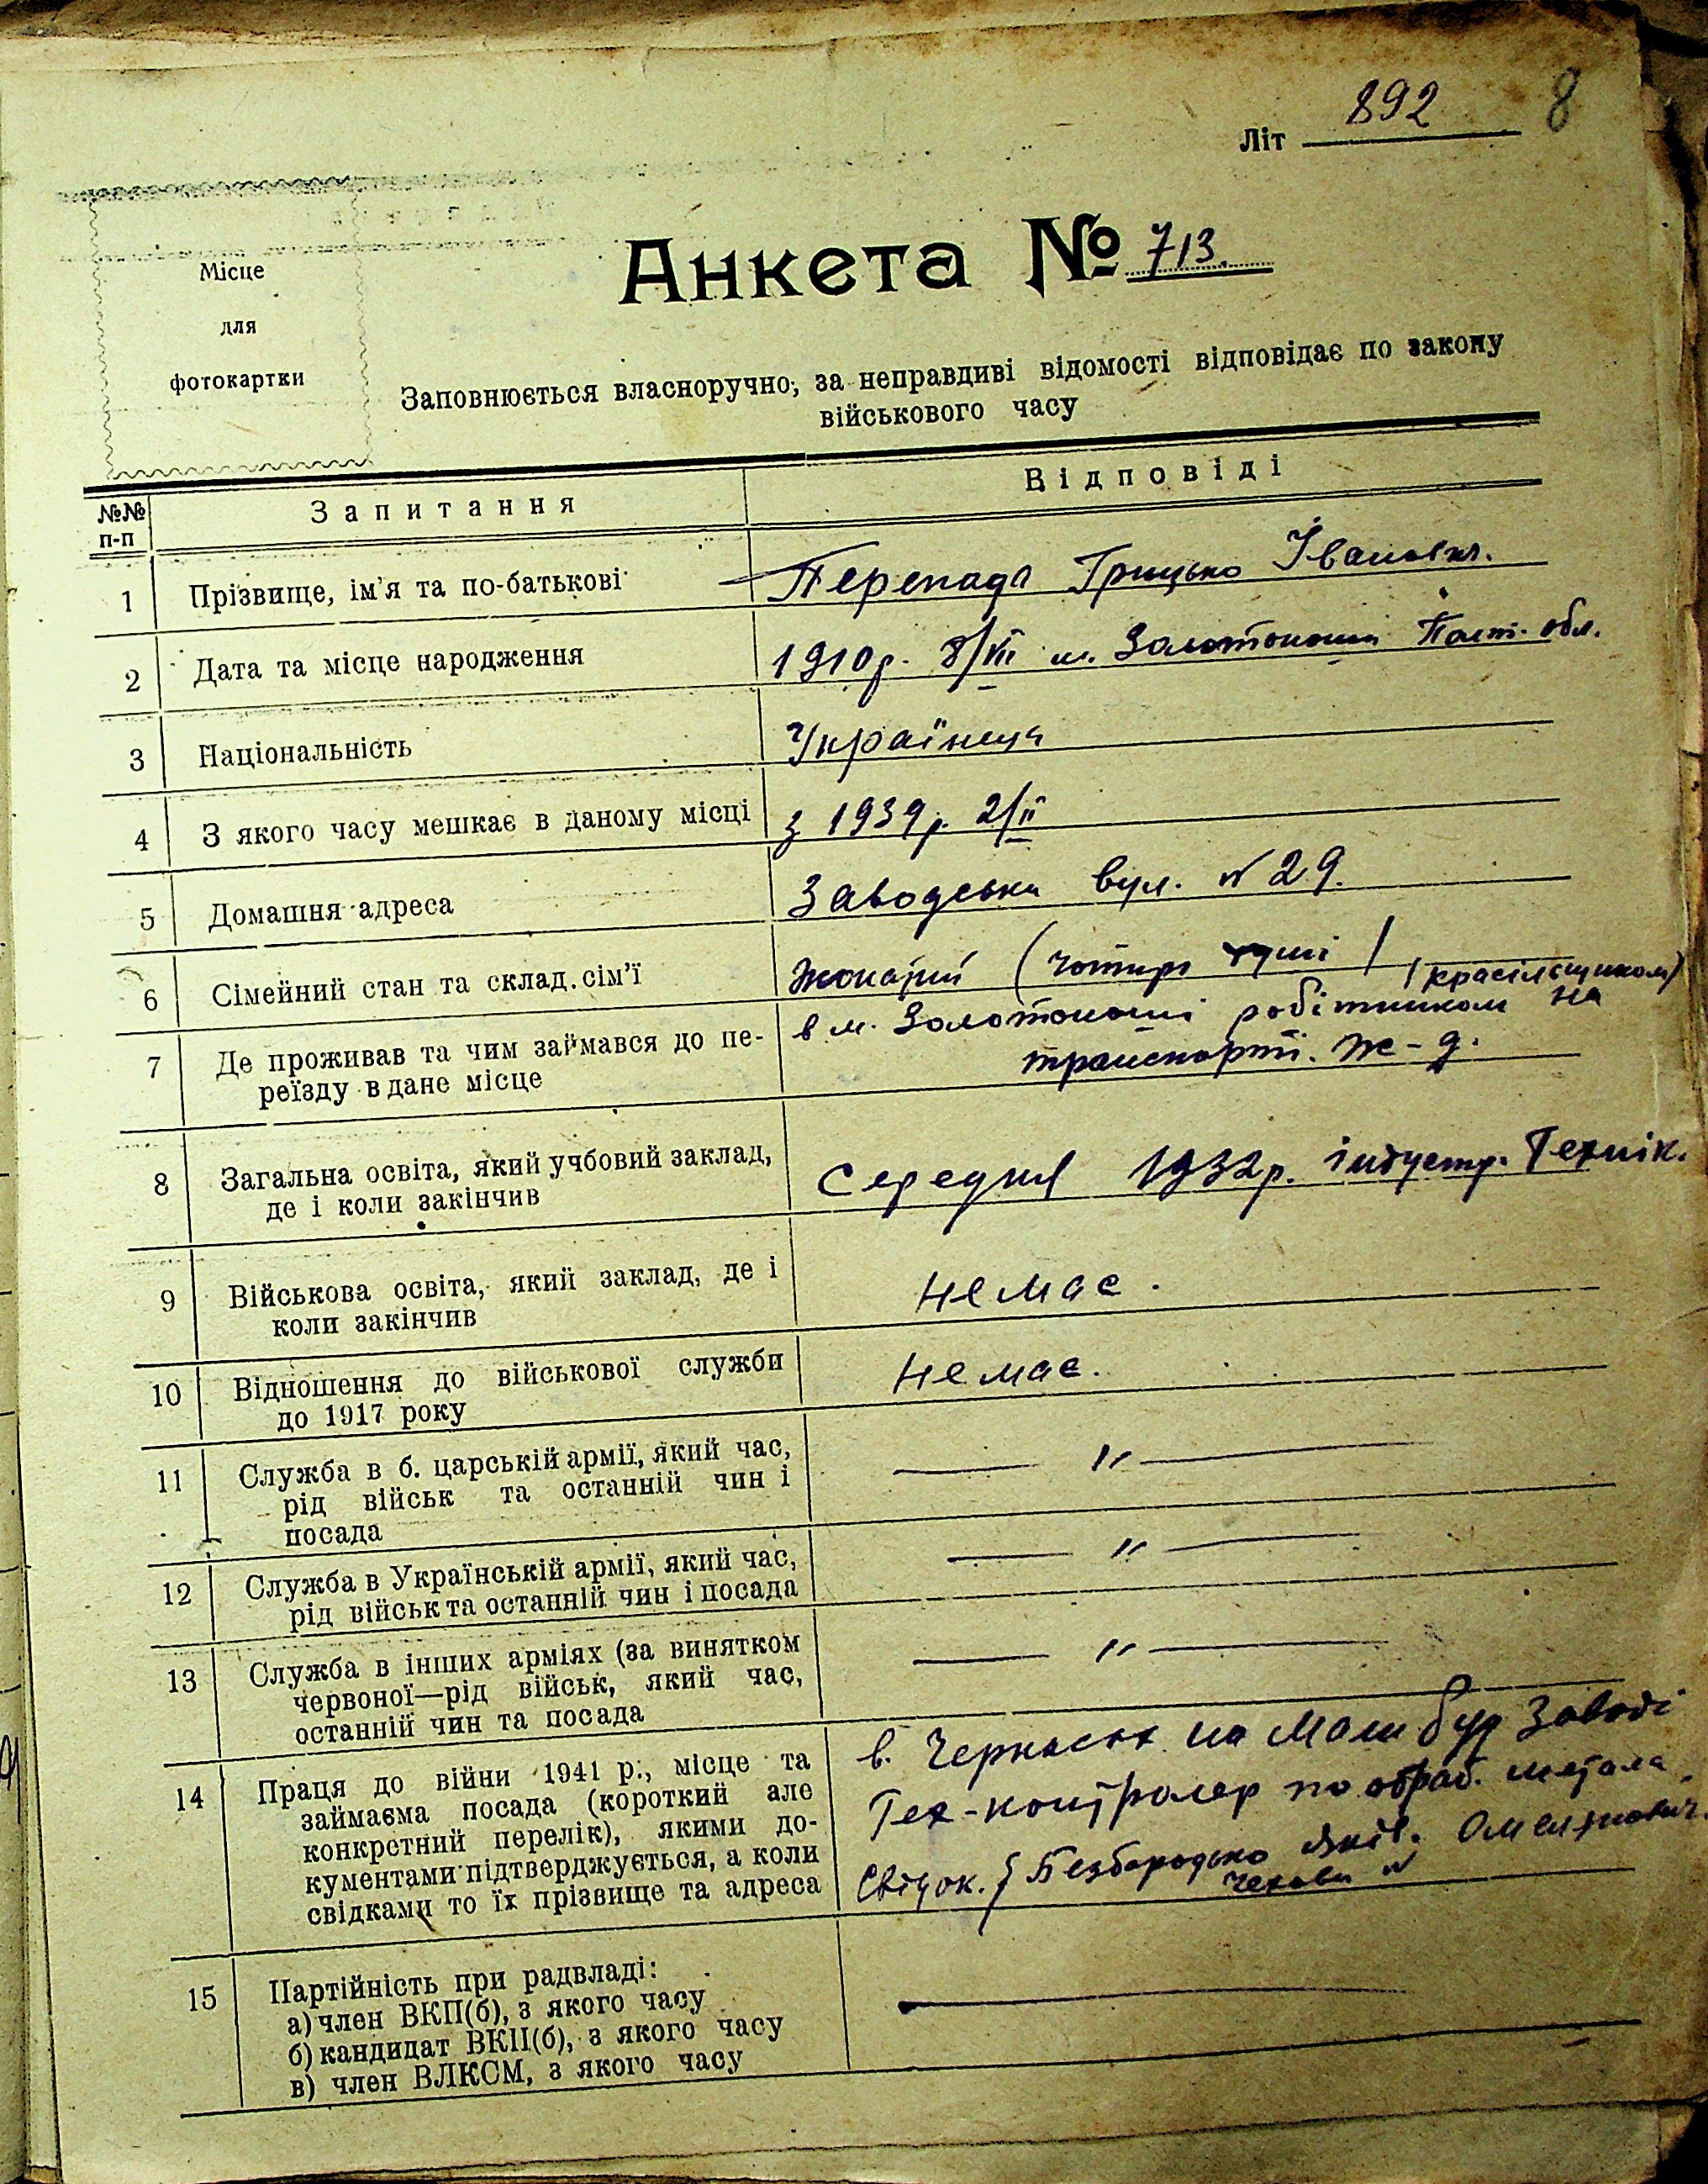 Літ 892 8
Місце
для
фотокартки
Анкета № 713.
Заповнюється власноручно, за неправдиві відомості відповідає по закону
військового часу
№№
п-п
Запитання
Відповіді
1 Прізвище, ім'я та по-батькові Перепада Грицько Іванович.
2 Дата та місце народження 1910р. 8/VII м. Золотоноші Полт. обл.
3 Національність Українець
4 З якого часу мешкає в даному місці з 1939р. 2/II
5 Домашня адреса Заводська вул. № 29.
6 Сімейний стан та склад сім'ї Жонатий (чотири душі)
(красільщиком)
7 Де проживав та чим займався до пе- в м. Золотоноші робітником на
реїзду в дане місце транспорті. Ж-д.
8 Загальна освіта, який учбовий заклад, Середня 1932р. індустр. Технік.
де і коли закінчив
9 Військова освіта, який заклад, де і немає.
коли закінчив
10 Відношення до військової служби немає.
до 1917 року
11 Служба в б. царській армії, який час, — " —
рід військ та останній чин і
посада
12 Служба в Українській армії, який час, — " —
рід військ та останній чин і посада
13 Служба в інших арміях (за винятком — " —
червоної—рід військ, який час,
останній чин та посада
14 Праця до війни 1941 р., місце та в. Черкасах на Машбуд Заводі
займаєма посада (короткий але Тех-контролер по обраб. метала
конкретний перелік), якими до-
кументами підтверджується, а коли Свідок. Безбородько Яків. Омелянович.
свідками то їх прізвище та адреса Чехова №
15 Партійність при радвладі: —
а) член ВКП(б), з якого часу
б) кандидат ВКП(б), з якого часу
в) член ВЛКСМ, з якого часу